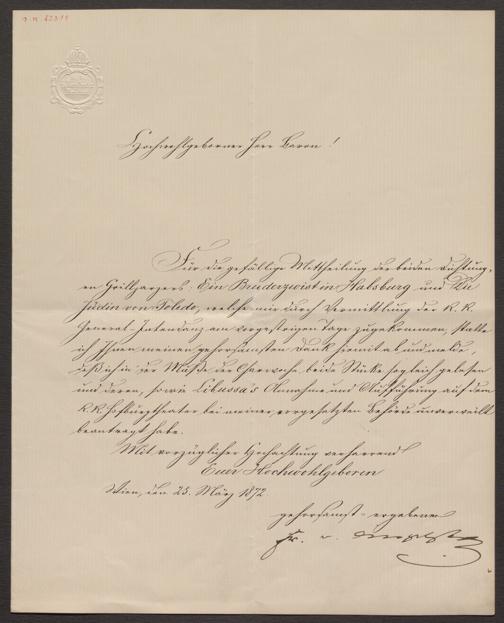 Hochwohlgeborner Herr Baron!
Für die gefällige Mittheilung der beiden Dichtung-
en Grillparzers: Ein Bruderzwist in Habsburg und Die
Jüdin von Toledo, welche mir durch Vermittlung der K. K.
General Intendanz am vorgestrigen Tage zugekommen, statte
ich Ihnen meinen gehorsamsten Dank hiemit ab und melde,
daß ich in der Muße der Charwoche beide Stücke sogleich gelesen
und deren, sowie Libussa's Annahme und Aufführung auf dem
K. K. Hofburgtheater bei meiner vorgesetzten Behörde unverweilt
beantragt habe.
Mit vorzüglicher Hochachtung verharrend
Euer Hochwohlgeboren
Wien, den 25. März 1872
gehorsamst-ergebener
Fr. v.